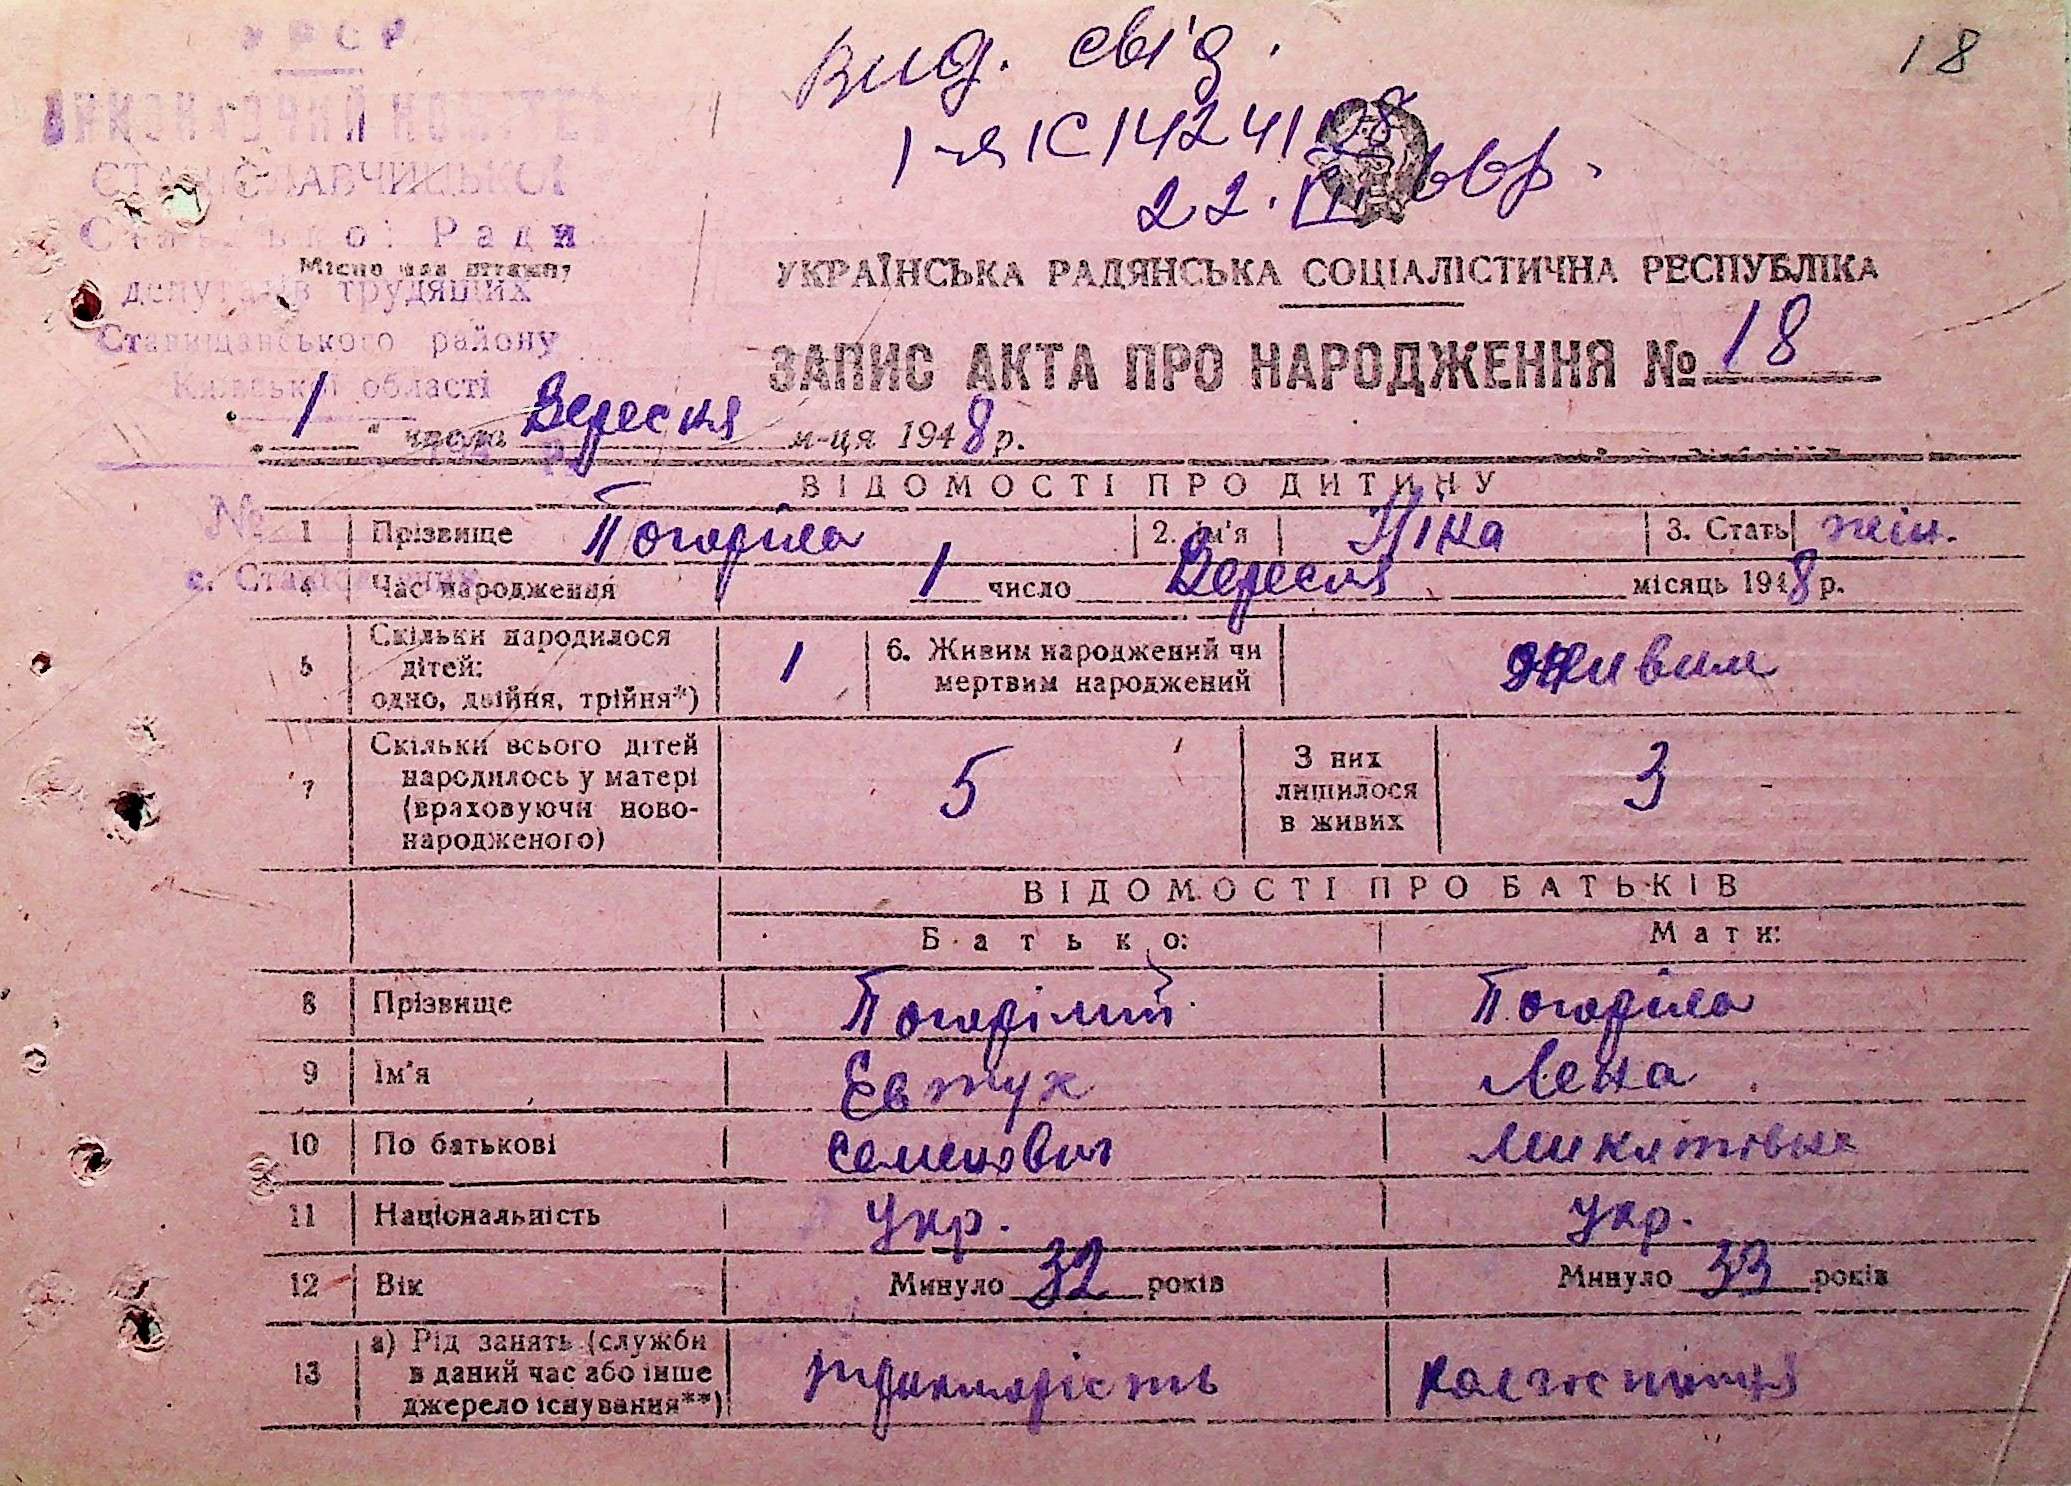 18
вид. свід.
22.
УРСР
ВИКОНАВЧИЙ КОМІТЕТ
СТАНІСЛАВЧИЦЬКОЇ
Сільської Ради
Місце для штампу
депутатів трудящих
Ставищанського району
Київської області
УКРАЇНСЬКА РАДЯНСЬКА СОЦІАЛІСТИЧНА РЕСПУБЛІКА
ЗАПИС АКТА ПРО НАРОДЖЕННЯ № 18
„1“ числа Вересня м-ця 1948 р.
ВІДОМОСТІ ПРО ДИТИНУ
№
1 Прізвище Погоріла 2. Ім'я Ніна 3. Стать жін.
4 Час народження 1 число Вересня місяць 1948 р.
5 Скільки народилося дітей: одно, двійня, трійня*) 1 6. Живим народжений чи мертвим народжений живим
7 Скільки всього дітей народилось у матері (враховуючи новонародженого) 5 З них лишилося в живих 3
ВІДОМОСТІ ПРО БАТЬКІВ
Батько: Мати:
8 Прізвище Погорілий Погоріла
9 Ім'я Евтух Лена
10 По батькові Семенович Микитовна
11 Національність укр. укр.
12 Вік Минуло 32 років Минуло 33 років
13 а) Рід занять (служби в даний час або інше джерело існування**) тракторість колгоспниця